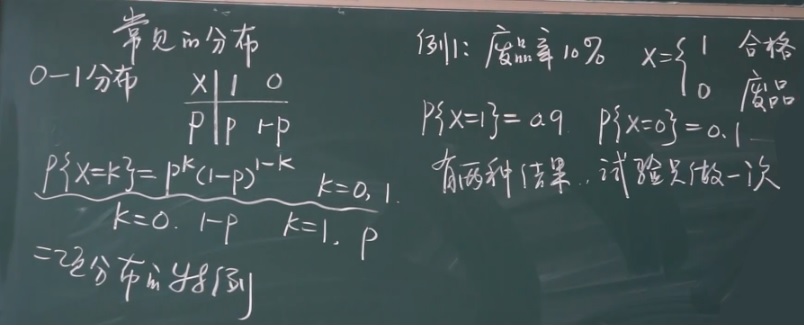 常见的分布
0-1分布
X | 1 0
P | P 1-P
P{X=K}=P^K(1-P)^{1-K} K=0,1.
K=0. 1-P K=1, P
二项分布的特例
例1: 废品率10% X={1 合格
0 废品
P{X=1}=0.9 P{X=0}=0.1
有两种结果, 试验只做一次